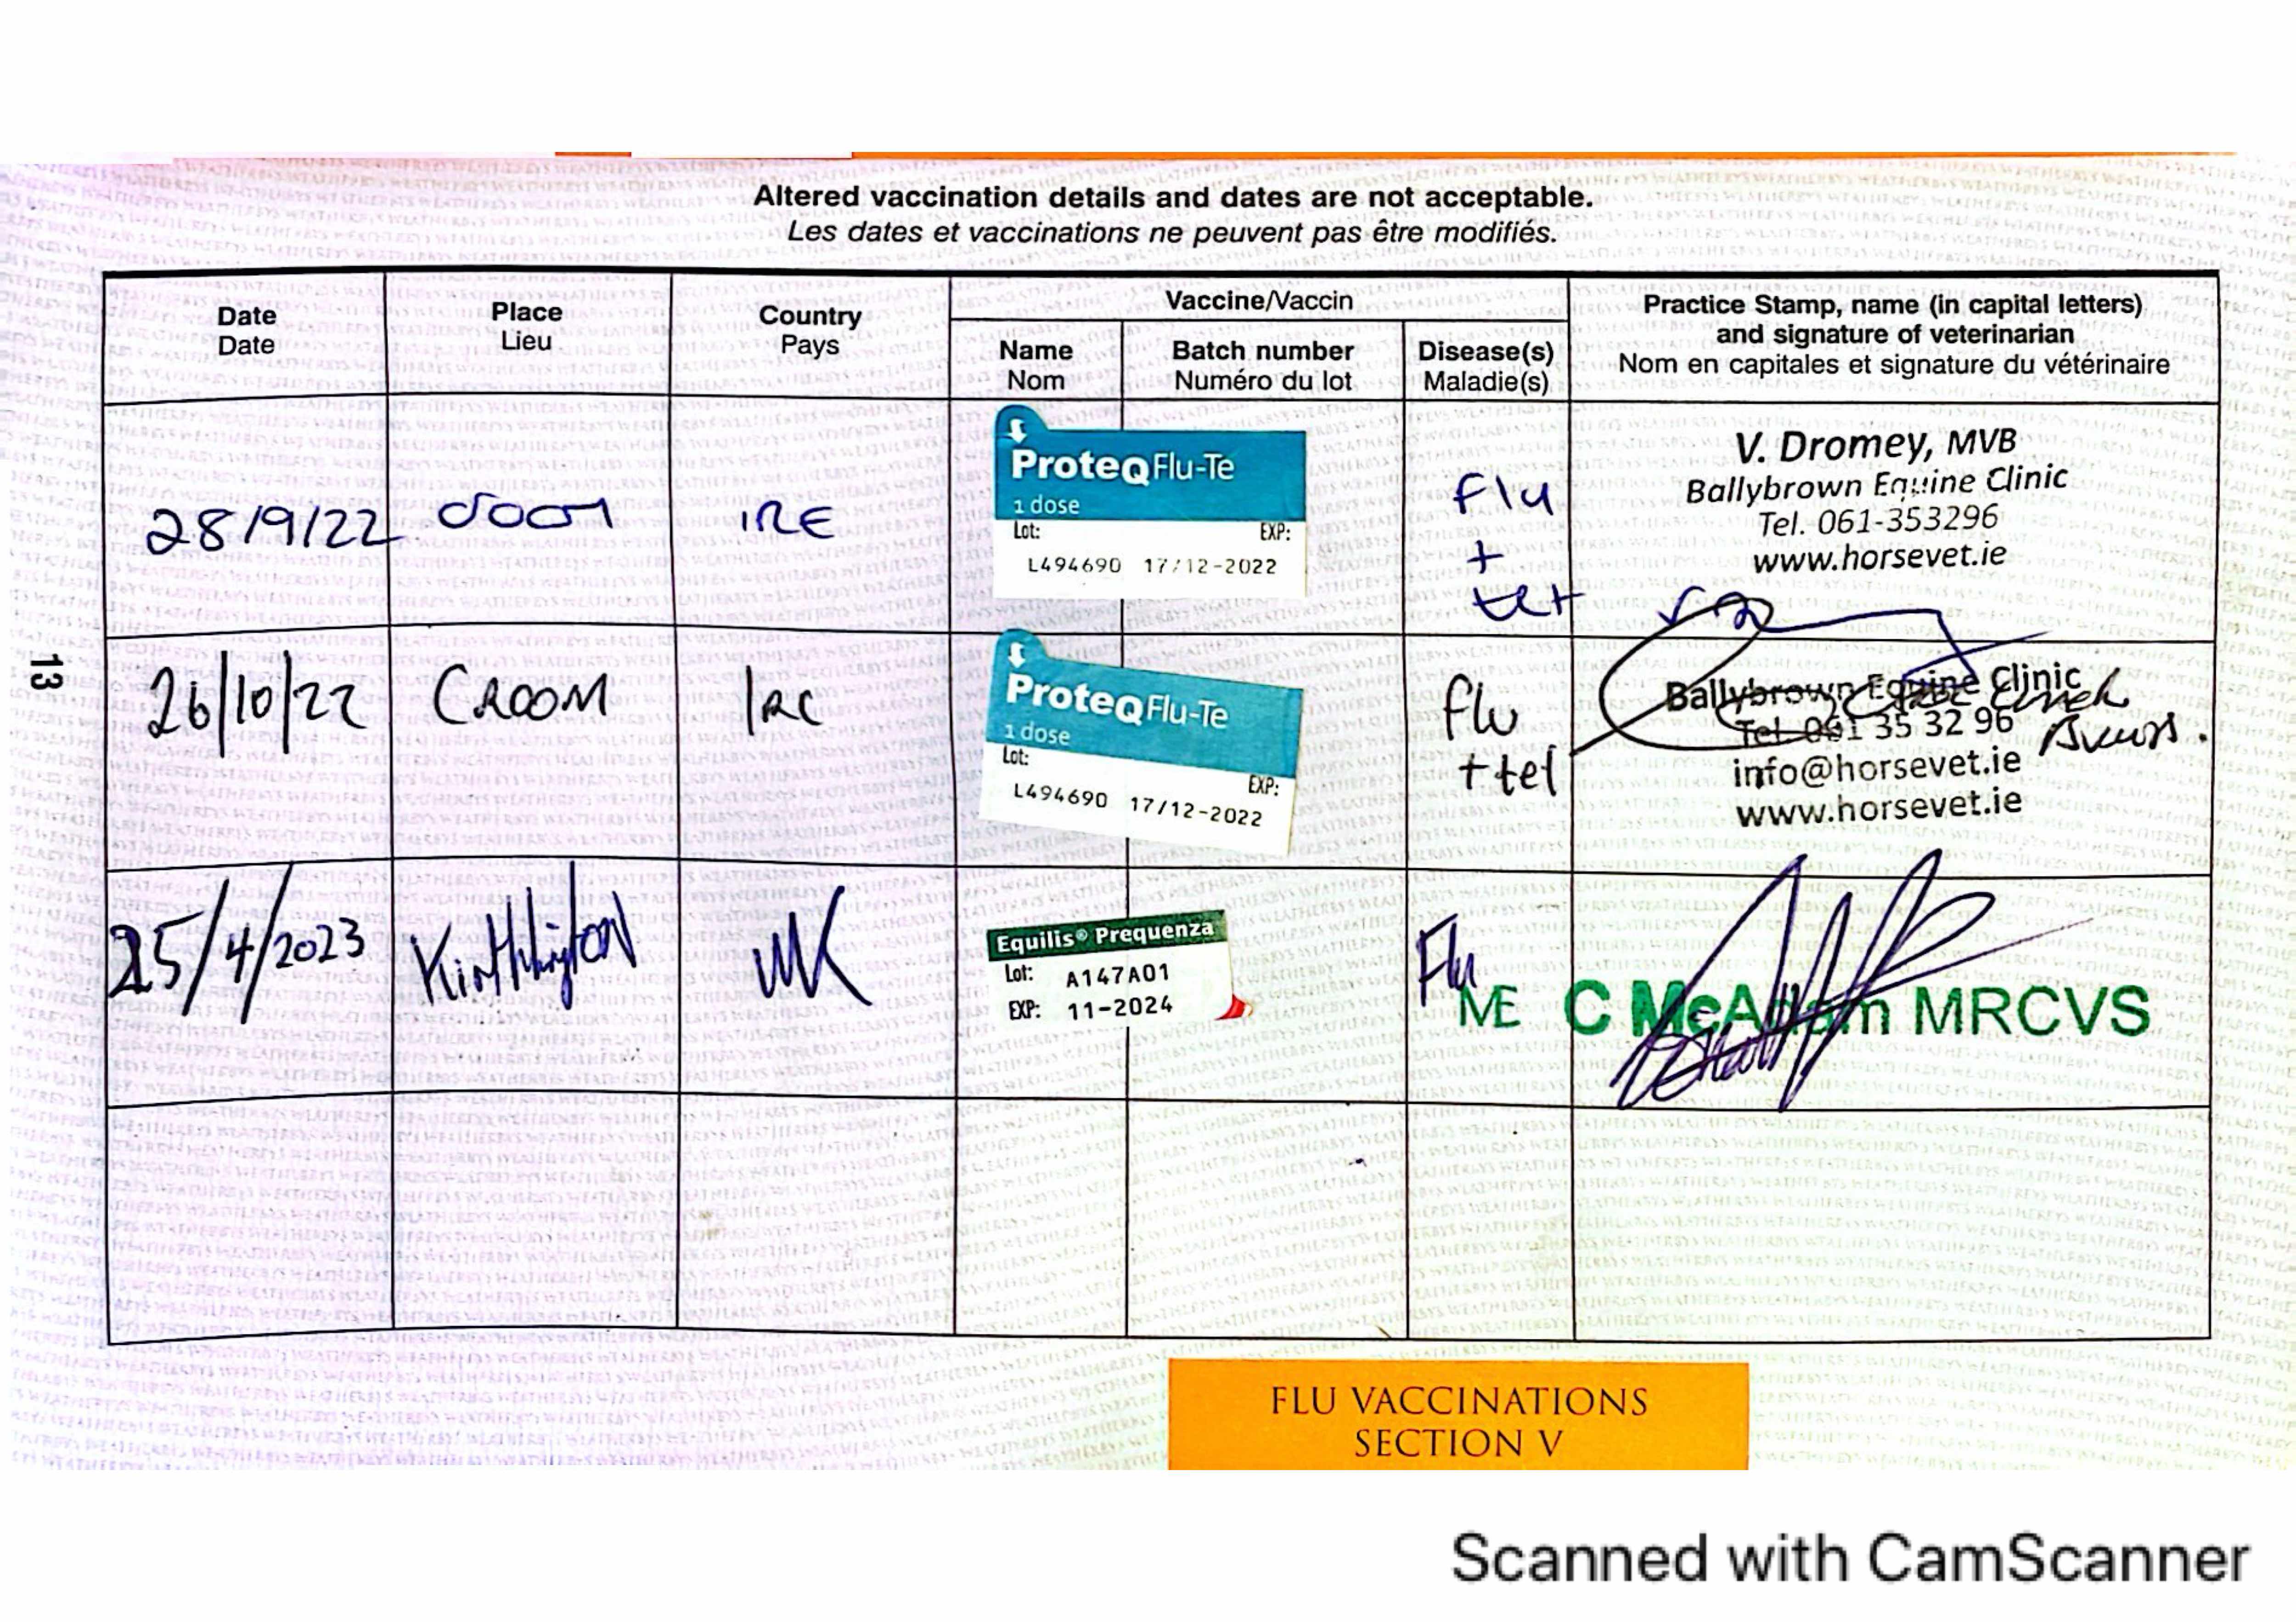 Altered vaccination details and dates are not acceptable.
Les dates et vaccinations ne peuvent pas être modifiés.
Date
Date
Place
Lieu
Country
Pays
Vaccine/Vaccin
Name
Nom
Batch number
Numéro du lot
Disease(s)
Maladie(s)
Practice Stamp, name (in capital letters)
and signature of veterinarian
Nom en capitales et signature du vétérinaire
28/9/22
IRE
ProteqFlu-Te
1 dose
Lot: EXP:
L494690 17/12-2022
Flu
+
tet
V. Dromey, MVB
Ballybrown Equine Clinic
Tel. 061-353296
www.horsevet.ie
26/10/22
CROOM
IRE
ProteqFlu-Te
1 dose
Lot: EXP:
L494690 17/12-2022
flu
+tet
Ballybrown Equine Clinic
Tel 061 35 32 96
info@horsevet.ie
www.horsevet.ie
25/4/2023
UK
Equilis® Prequenza
Lot: A147A01
EXP: 11-2024
Flu
ME C McAdam MRCVS
13
FLU VACCINATIONS
SECTION V
Scanned with CamScanner